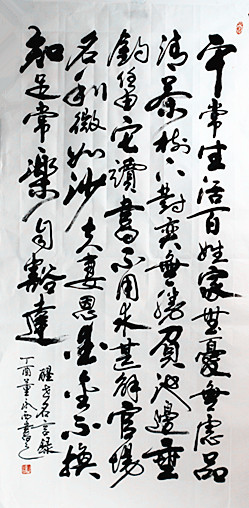 平常生活百姓家無憂無慮品
清茶樹下對弈無勝負池邊垂
釣居宅讀書不用求甚解官場
名利微如沙夫妻恩愛金不換
知足常樂自豁達
醒世名言錄
丁酉董